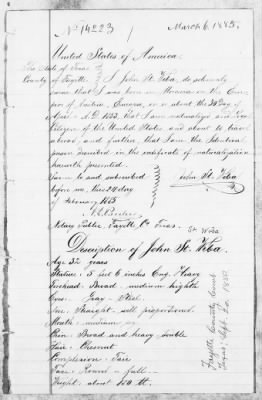 No 14223
March 6, 1885.
United States of America.
The State of Texas
County of Fayette } I John St. Veba, do solemnly
swear that I was born in Moravia on the Em-
pire of Austria, Europe, on or about the 30 Day of
April A.D. 1853, that I am naturalized and a
Citizen of the United States and about to travel
abroad, and further, that I am the Identical
person described in the certificate of naturalization
herewith presented.
Sworn to and subscribed
before me, this 28 day
of February 1885
John St. Veba
Notary Public, Fayette Co Texas.
St Veba
Description of John St. Veba.
Age 32 years
Stature: 5 feet 6 inches Eng.
Forehead: Broad - medium heighth
Eyes: Gray - Steel
Straight - well proportioned
Mouth: medium
Chin: Broad and heavy - double
Hair: Chesnut
Complexion: Fair
Face: Round - full -
Weight: about 180 lb.
Fayette County Court
Texas, Sept. 20, 1880